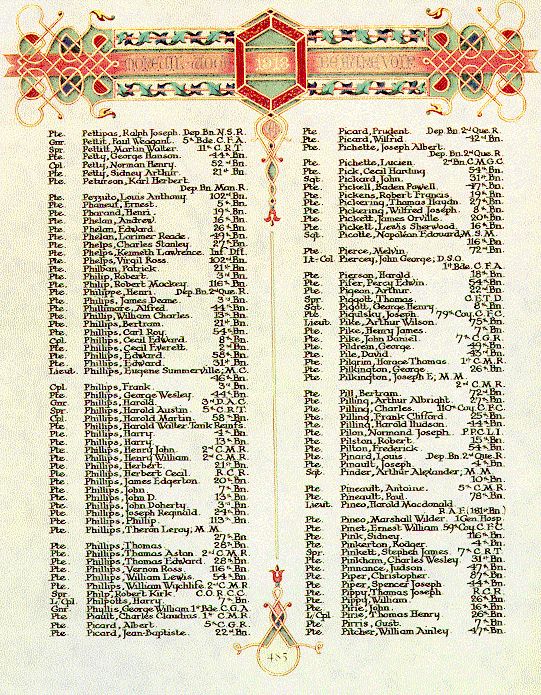 1918
Pte. Pettipas, Ralph Joseph. Dep. Bn. N.S.R.
Gnr. Pettit, Paul Weagant. 5th Bde. C.F.A.
Spr. Pettitt, Martin Walter. 11th C.R.T.
Pte. Petty, George Hanson. 44th Bn.
Cpl. Petty, Norman Henry. 52nd Bn.
Pte. Petty, Sidney Arthur. 21st Bn.
Pte. Peturson, Karl Herbert
Dep. Bn. Man. R.
Pte. Pezzito, Louis Anthony. 102nd Bn.
Pte. Phaneuf, Ernest 5th Bn.
Pte. Pharand, Henri 19th Bn.
Pte. Phelan, Andrew 16th Bn.
Pte. Phelan, Edward 26th Bn.
Pte. Phelan, Lorimer Reade. 49th Bn.
Pte. Phelps, Charles Stanley. 27th Bn.
Pte. Phelps, Kenneth Lawrence. Inf. Dft.
Pte. Phelps, Virgil Ross 102nd Bn.
Pte. Philban, Patrick 21st Bn.
Pte. Philip, Robert 3rd Bn.
Pte. Philip, Robert Mackey. 116th Bn.
Pte. Philippe, Henri Dep. Bn. 2nd Que. R.
Pte. Philips, James Deane. 3rd Bn.
Pte. Phillimore, Alfred 44th Bn.
Pte. Phillip, William Charles 13th Bn.
Pte. Phillips, Bertram 21st Bn.
Pte. Phillips, Carl Roy 54th Bn.
Cpl. Phillips, Cecil Edward 8th Bn.
Pte. Phillips, Cecil Everett 2nd Bn.
Pte. Phillips, Edward 58th Bn.
Pte. Phillips, Edward 31st Bn.
Lieut. Phillips, Eugene Summerville, M.C.
46th Bn.
Cpl. Phillips, Frank 3rd Bn.
Pte. Phillips, George Wesley. 44th Bn.
Gnr. Phillips, Harold 3rd D.A.C.
Spr. Phillips, Harold Austin 5th C.R.T.
Cpl. Phillips, Harold Martin 58th Bn.
Pte. Phillips, Harold Walter. Tank Reinfs.
Pte. Phillips, Harry 4th Bn.
Pte. Phillips, Harry 13th Bn.
Pte. Phillips, Henry John 2nd C.M.R.
Pte. Phillips, Henry William 2nd C.M.R.
Pte. Phillips, Herbert 21st Bn.
Pte. Phillips, Herbert Cecil R.C.R.
Pte. Phillips, James Edgerton 20th Bn.
Pte. Phillips, John 7th Bn.
Pte. Phillips, John D. 13th Bn.
Pte. Phillips, John Doherty 3rd Bn.
Pte. Phillips, Joseph Reginald 24th Bn.
Pte. Phillips, Phillip 113th Bn.
Pte. Phillips, Theran Leroy, M.M.
27th Bn.
Pte. Phillips, Thomas 28th Bn.
Pte. Phillips, Thomas Aston 2nd C.M.R.
Pte. Phillips, Thomas Edward 28th Bn.
Pte. Phillips, Vernon Ross 116th Bn.
Pte. Phillips, William Lewis 54th Bn.
Pte. Phillips, William Wychliffe 2nd C.M.R.
Spr. Philp, Robert Kirk C.O.R.C.C.
L/Cpl. Philpotts, Harry 7th Bn.
Gnr. Phyllis, George William 1st Bde. C.G.A.
Pte. Piault, Charles Claudius 1st C.M.R.
Pte. Picard, Albert 5th C.G.R.
Pte. Picard, Jean-Baptiste. 22nd Bn.
Pte. Picard, Prudent. Dep. Bn. 2nd Que. R.
Pte. Picard, Wilfrid 42nd Bn.
Pte. Pichette, Joseph Albert
Dep. Bn. 2nd Que. R.
Pte. Pichette, Lucien 2nd Bn. C.M.G.C.
Pte. Pick, Cecil Harting 54th Bn.
Sgt. Pickard, John 31st Bn.
Pte. Pickell, Baden Powell 17th Bn.
Pte. Pickens, Robert Francis 19th Bn.
Pte. Pickering, Thomas Haydn 27th Bn.
Pte. Pickering, Wilfred Joseph 8th Bn.
Pte. Pickett, James Orville 20th Bn.
Pte. Pickett, Lewis Sherwood 16th Bn.
Sgt. Picotte, Napoléon Edouard, M.S.M.
116th Bn.
Pte. Pierce, Melvin 72nd Bn.
Lt-Col. Piercey, John George, D.S.O.
1st Bde. C.F.A.
Pte. Pierson, Harald 18th Bn.
Pte. Pifer, Percy Edwin 54th Bn.
Pte. Pigeon, Arthur 22nd Bn.
Spr. Piggott, Thomas C.E.T.D.
Sgt. Pigott, George Henry 8th Bn.
Pte. Piguilsky, Joseph 79th Coy. C.F.C.
Lieut. Pike, Arthur Wilson 75th Bn.
Pte. Pike, Henry James 7th Bn.
Pte. Pike, John Daniel 7th C.G.R.
Pte. Pildrem, George 49th Bn.
Pte. Pile, David 43rd Bn.
Pte. Pilgrim, Horace Thomas 1st C.M.R.
Pte. Pilkington, George 26th Bn.
Pte. Pilkington, Joseph E., M.M.
2nd C.M.R.
Pte. Pill, Bertram 72nd Bn.
Pte. Pilling, Arthur Albright 27th Bn.
Pte. Pilling, Charles 110th Coy. C.F.C.
Pte. Pilling, Frank Clifford 25th Bn.
Pte. Pilling, Harold Hudson 44th Bn.
Pte. Pilon, Normand Joseph P.P.C.L.I.
Pte. Pilston, Robert 15th Bn.
Pte. Pilton, Frederick 54th Bn.
Pte. Pinard, Louis Dep. Bn. 2nd Que. R.
Pte. Pinault, Joseph 4th Bn.
Sgt. Pinder, Arthur Alexander, M.M.
10th Bn.
Pte. Pineault, Antoine 5th C.M.R.
Pte. Pineault, Paul 78th Bn.
Lieut. Pineo, Harold Macdonald
R.A.F. (181st Bn.)
Pte. Pineo, Marshall Wilder 1 Gen. Hosp.
Pte. Pinet, Ernest William 59th Coy. C.F.C.
Pte. Pink, Sidney 116th Bn.
Pte. Pinkerton, Rodger 4th Bn.
Spr. Pinkett, Stephen James 7th C.R.T.
Pte. Pinkham, Charles Wesley 31st Bn.
Pte. Pinnance, Judson 47th Bn.
Pte. Piper, Christopher 87th Bn.
Pte. Piper, Spencer Joseph 44th Bn.
Pte. Pippy, Thomas Joseph R.C.R.
Pte. Pippy, William 26th Bn.
Pte. Pirie, John 16th Bn.
L/Cpl. Pirie, Thomas Henry 26th Bn.
Pte. Pirris, Gust 7th Bn.
Pte. Pitcher, William Ainley 47th Bn.
485